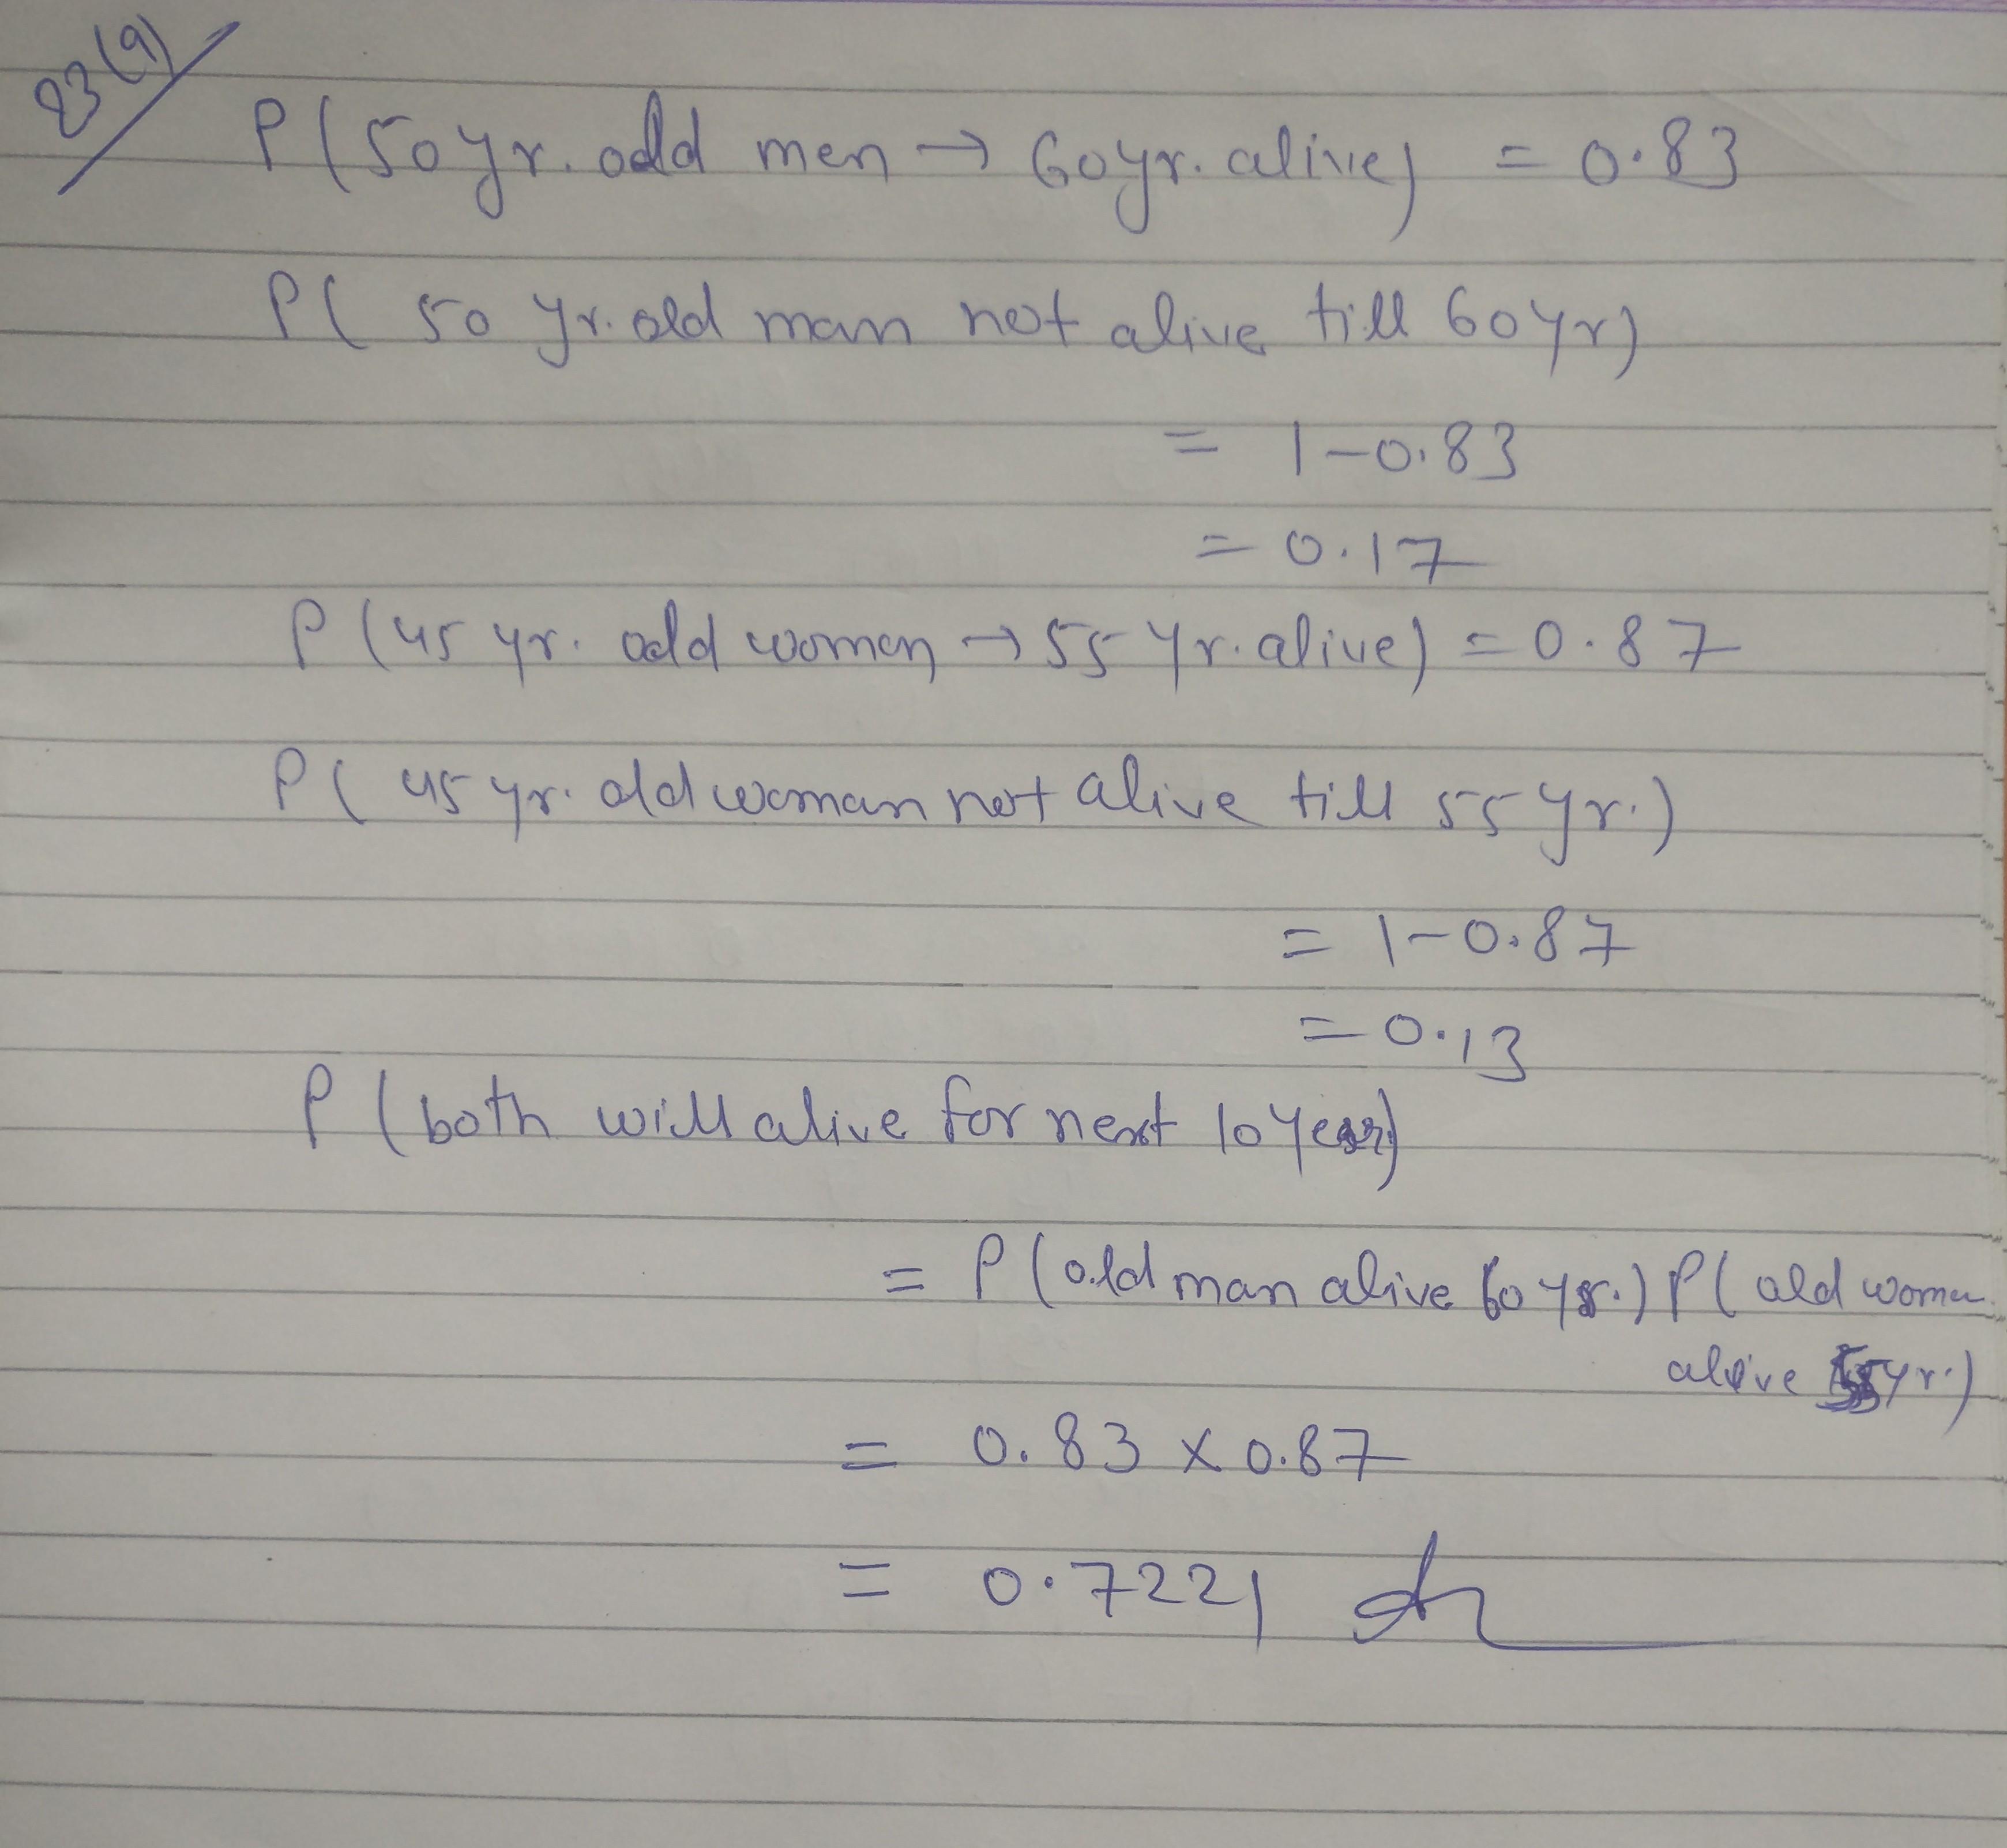 23(a)
P(50yr. old men → 60yr. alive) = 0.83
P( 50 yr. old man not alive till 60yr)
= 1-0.83
= 0.17
P(45 yr. old women → 55 yr. alive) = 0.87
P( 45 yr. old woman not alive till 55 yr.)
= 1-0.87
= 0.13
P (both will alive for next 10 year)
= P(old man alive 60 yr.) P( old women
alive 55yr.)
= 0.83 x 0.87
= 0.7221